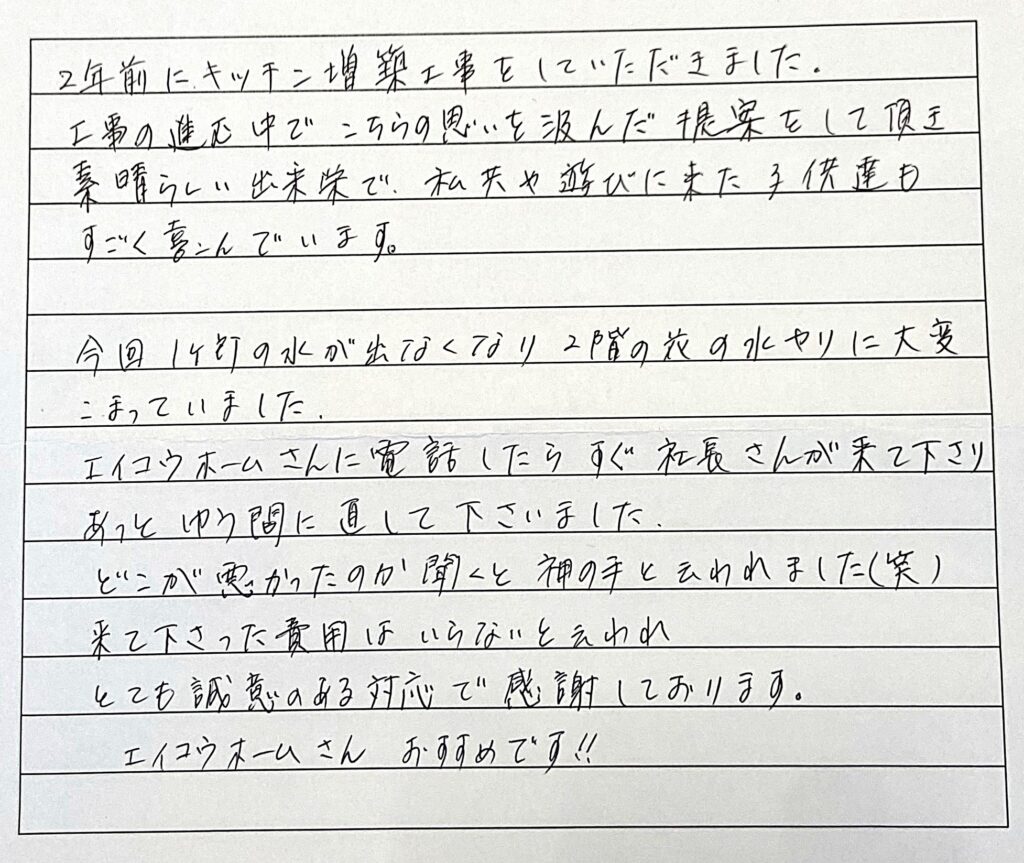 2年前にキッチン増築工事をしていただきました.
工事の進む中で こちらの思いを汲んだ提案をして頂き
素晴らしい出来栄で、私共や遊びに来た子供達も
すごく喜こんでいます。
今回 1ヶ所の水が出なくなり 2階の花の水やりに大変
こまっていました.
エイコウホームさんに電話したら すぐ社長さんが来て下さり
あっとゆう間に直して下さいました.
どこが悪かったのか聞くと 神の手と云われました(笑)
来て下さった費用は いらないと云われ
とても誠意のある対応で感謝しております。
エイコウホームさん おすすめです!!